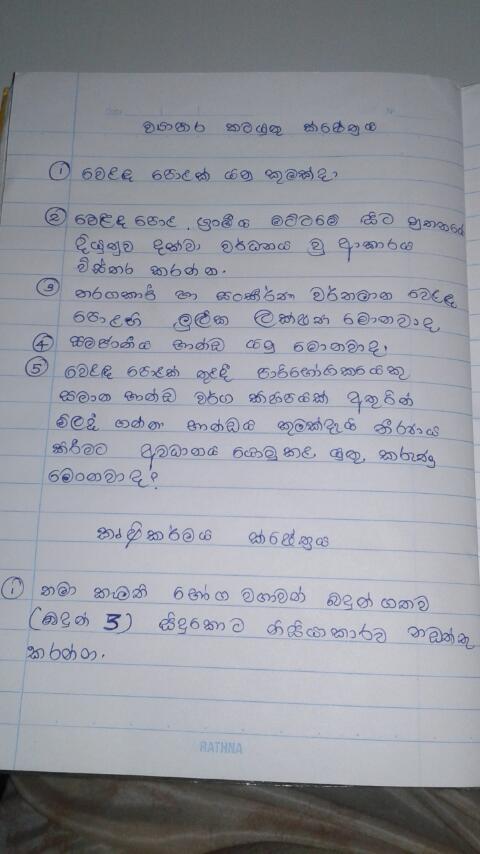 ව්‍යාපාර කටයුතු ක්ෂේත්‍රය
① වෙළඳ පොළක් යනු කුමක්ද?
② වෙළඳ පොළ, ප්‍රාථමික මට්ටමේ සිට නූතනයේ
දියුණුව දක්වා වර්ධනය වූ ආකාරය
විස්තර කරන්න.
③ තරගකාරී හා සංකීර්ණ වර්තමාන වෙළඳ
පොළෙහි මූලික ලක්ෂණ මොනවාද
④ සමජාතීය භාණ්ඩ යනු මොනවාද,
⑤ වෙළඳ පොළක් තුළදී පාරිභෝගිකයෙකු
සමාන භාණ්ඩ වර්ග කිහිපයක් අතුරින්
මිලදී ගන්නා භාණ්ඩය කුමක්දැයි තීරණය
කිරීමට අවධානය යොමු කළ යුතු කරුණු
මොනවාද?
කෘෂිකර්මය ක්ෂේත්‍රය
① තමා කැමති භෝග වගාවක් බඳුන් ගතව
(බඳුන් 3) සිදුකොට නිසියාකාරව නඩත්තු
කරන්න.
RATHNA